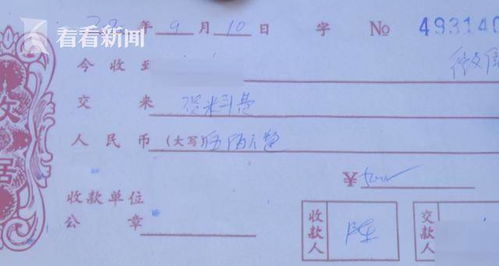 看看新闻
年 9 月 10 日 字 No 493140
今收到
交来 资料费
人民币 (大写) 伍佰元整
¥ 500
收款单位
公章
收款人 陈
交款人
收
据